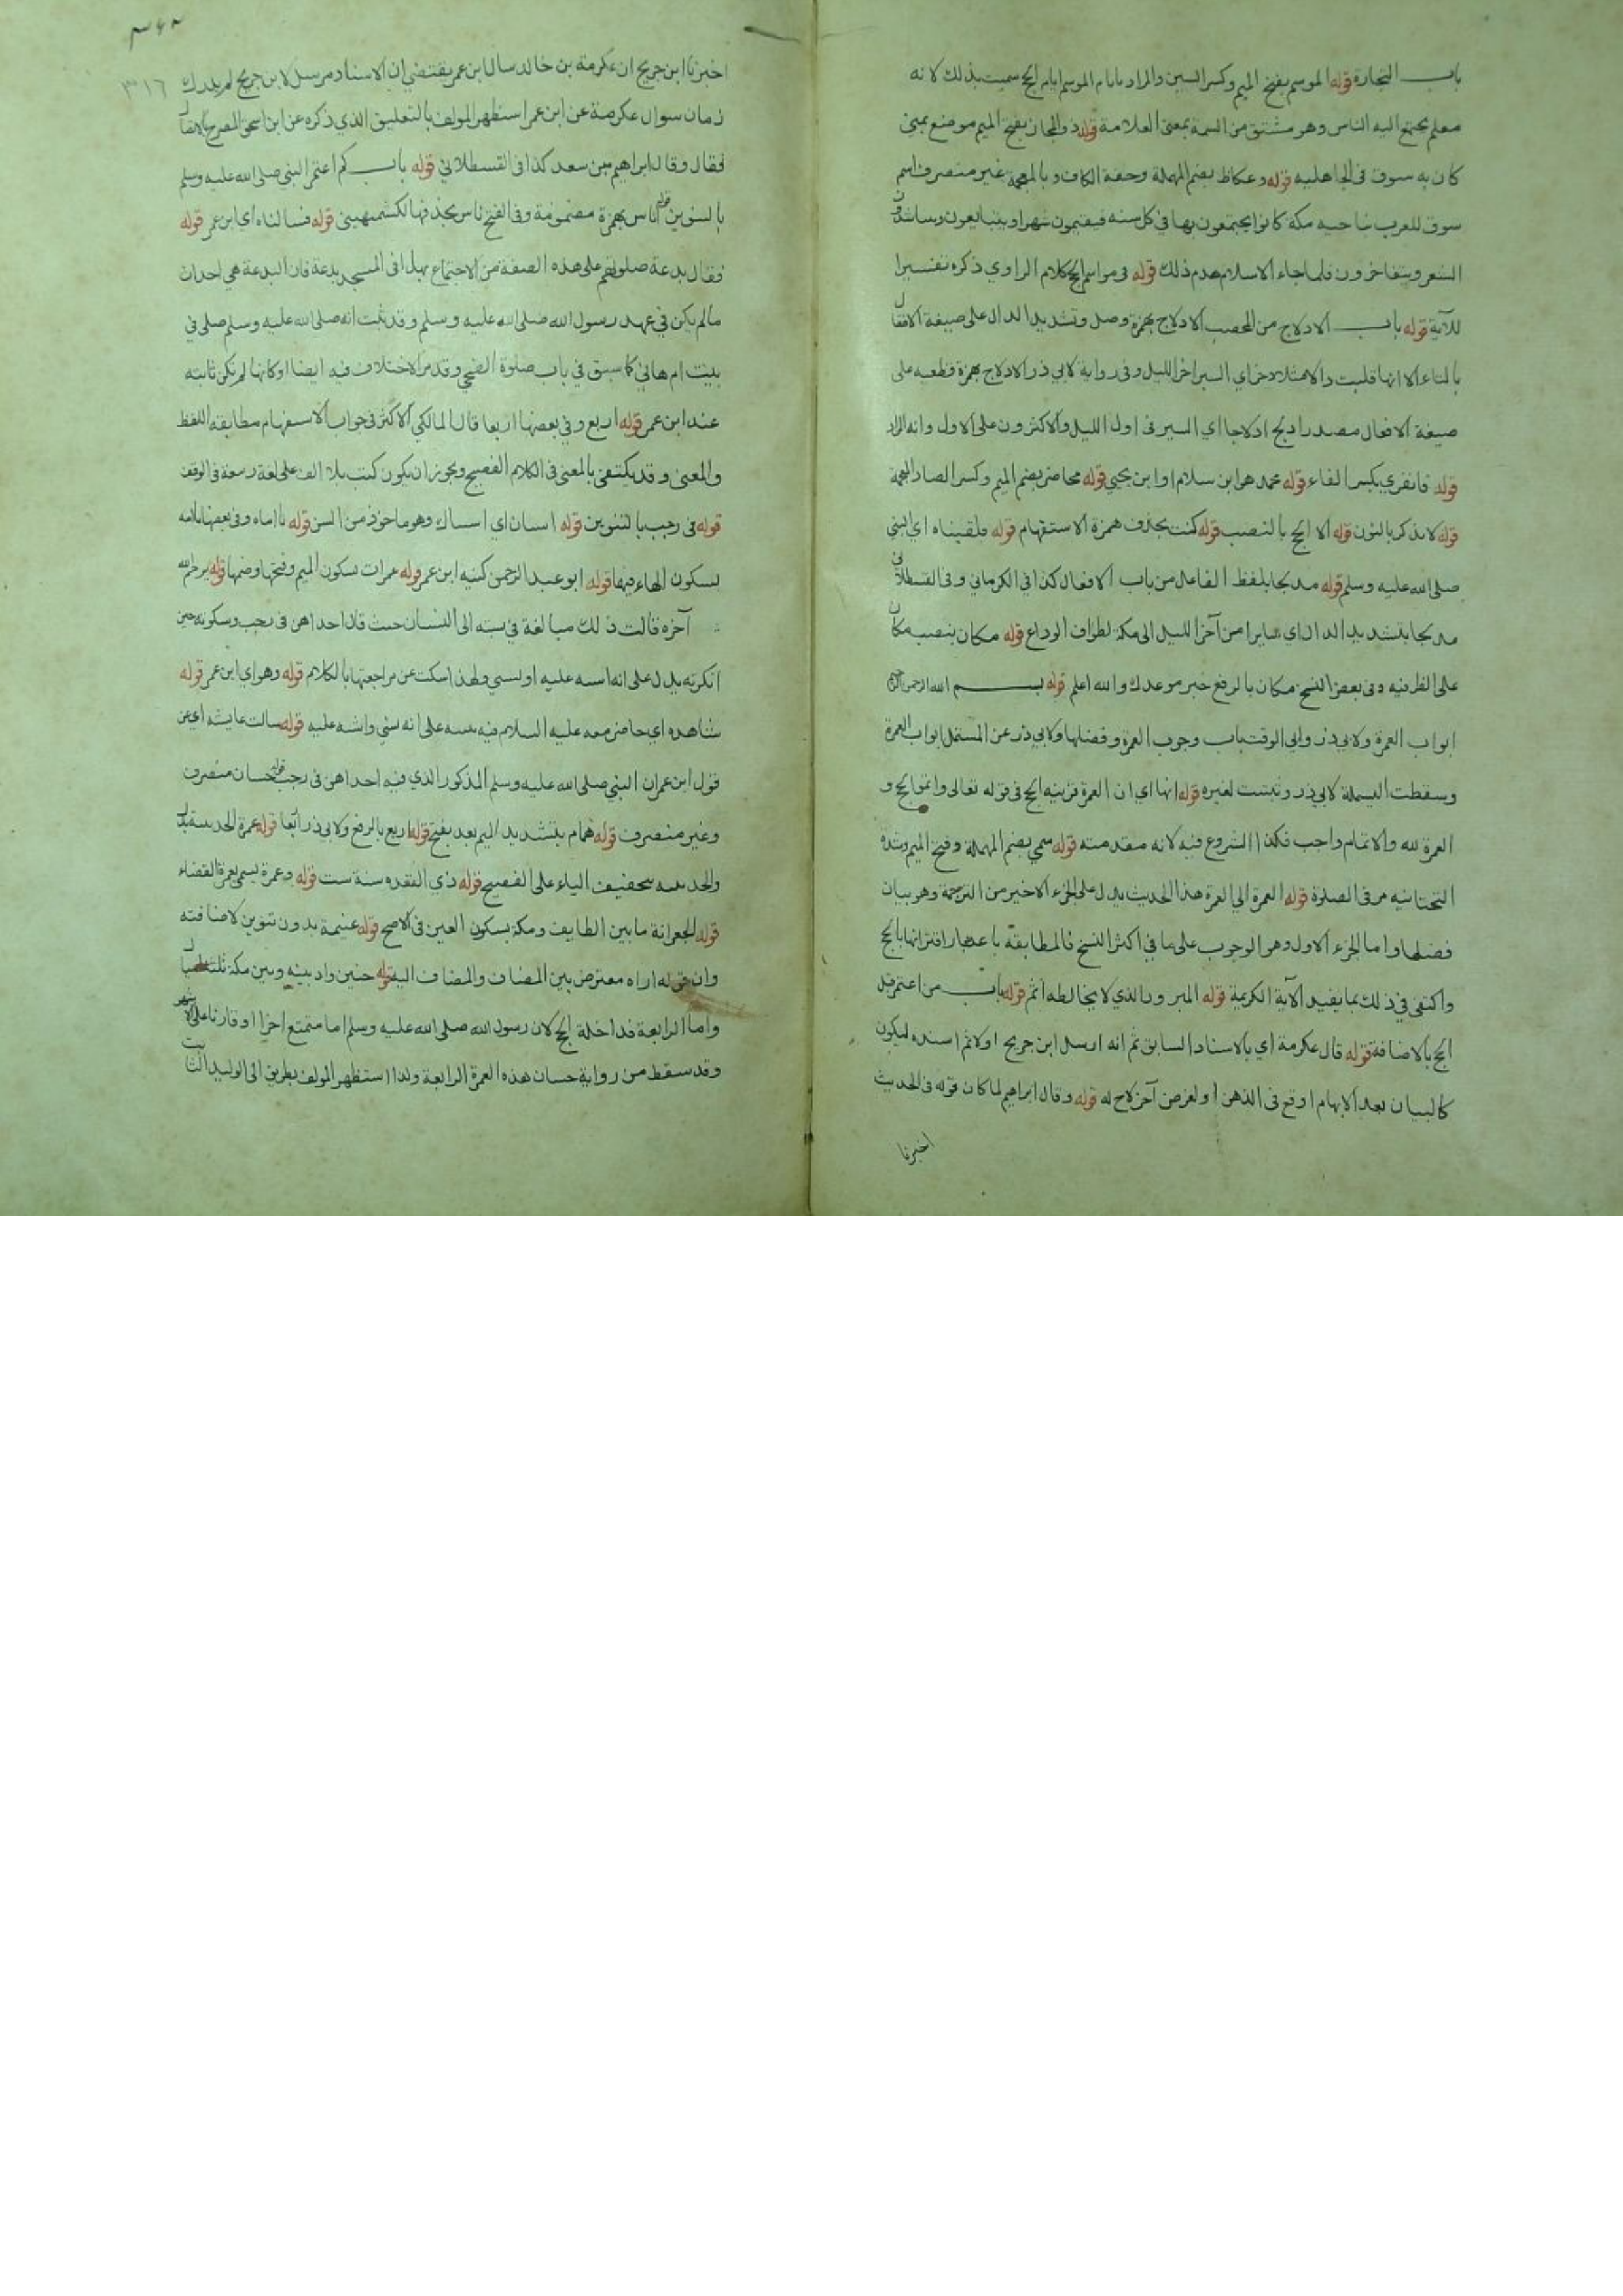 باب التجارة قوله الموسم بفتح الميم وكسر السين والمراد بايام الموسم ايام الحج سميت بذلك لانه
معلم يجتمع اليه الناس وهو مشتق من السمة بمعنى العلامة قوله ذو المجاز بفتح الميم موضع بمنى
كان به سوق في الجاهليه قوله وعكاظ بضم المهملة وخفة الكاف وبالمعجمة غير منصرف اسم
سوق للعرب بناحيه مكة كانوا يجتمعون بها في كل سنه فيقيمون شهرا ويتبايعون ويتناشدون
الشعر ويتفاخرون فلما جاء الاسلام هدم ذلك قوله في مواسم الحج كلام الراوي ذكره تفسيرا
للآية قوله باب الادلاج من المحصب الادلاج بهمزة وصل وتشديد الدال على صيغة الافتعال
بالتاء الا انها قلبت دالا اي السير اخر الليل وفي رواية لابي ذر الادلاج بهمزة قطعه على
صيغة الافعال مصدر ادلج ادلاجا اي السير في اول الليل والاكثرون على الاول وانه المراد
قوله فانفري بكسر الفاء قوله محمد هو ابن سلام او ابن يحيى قوله محاضر بضم الميم وكسر الضاد المعجمة
قوله لا نذكر بالنون قوله الا الحج بالنصب قوله كنت بحذف همزة الاستفهام قوله فلقيناه اي النبي
صلى الله عليه وسلم قوله مدلجا بلفظ الفاعل من باب الافعال كذا في الكرماني وفي القسطلاني
مدلجا بتشديد الدال اي سايرا من آخر الليل الى مكة لطواف الوداع قوله مكان بنصب مكان
على الظرفيه وفي بعض النسخ مكان بالرفع خبر موعدك والله اعلم قوله بسم الله الرحمن الرحيم
ابواب العمرة ولابي ذر وابي الوقت باب وجوب العمرة وفضلها ولابي ذر عن المستملي ابواب العمرة
وسقطت البسملة لابي ذر وثبتت لغيره قوله انها اي ان العمرة قرينة الحج في قوله تعالى واتموا الحج و
العمرة لله والاتمام واجب فكذا الشروع فيه لانه مقدمته قوله سمي بضم المهملة وفتح الميم وشدة
التحتانيه مر في الصلوة قوله العمرة الى العمرة هذا الحديث يدل على الجزء الاخير من الترجمة وهو بيان
فضلها واما الجزء الاول وهو الوجوب على ما في اكثر النسخ فالمطابقة باعتبار اقترانها بالحج
واكتفى في ذلك بما يفيد الآية الكريمة قوله المبرور الذي لا يخالطه اثم قوله باب من اعتمر قبل
الحج بالاضافة قوله قال عكرمة اي بالاسناد السابق ثم انه ارسل ابن جريج اولا ثم اسنده ليكون
كالبيان بعد الابهام اوقع في الذهن او لغرض آخر لاح له قوله وقال ابراهيم لما كان قوله في الحديث
اخبرنا
٣١٦
اخبرنا ابن جريج ان عكرمة بن خالد سال ابن عمر يقتضي ان الاسناد مرسل لان جريج لم يدرك
زمان سوال عكرمة عن ابن عمر استظهر المولف بالتعليق الذي ذكره عن ابن اسحق المصرح بالاتصال
فقال وقال ابراهيم بن سعد كذا في القسطلاني قوله باب كم اعتمر النبي صلى الله عليه وسلم
بالتنوين قوله اناس بهمزة مضمومة وفي الفتح ناس بحذفها لكشميهني قوله فسالناه اي ابن عمر قوله
فقال بدعة صلوتهم على هذه الصفة من الاجتماع بها في المسجد بدعة فان البدعة هي احداث
مالم يكن في عهد رسول الله صلى الله عليه وسلم وقد ثبت انه صلى الله عليه وسلم صلى في
بيت ام هاني كما سبق في باب صلوة الضحى وقد مر الاختلاف فيه ايضا او كانها لم تكن ثابته
عند ابن عمر قوله اربع وفي بعضها اربعا قال المالكي الاكثر في جواب الاستفهام مطابقة اللفظ
والمعنى وقد يكتفي بالمعنى في الكلام الفصيح ويجوز ان يكون كتب بلا الف على لغة ربيعة في الوقف
قوله في رجب بالتنوين قوله استنان اي استساك وهو ماخوذ من السن قوله يا اماه وفي بعضها يا امه
بسكون الهاء فيهما قوله ابو عبد الرحمن كنيه ابن عمر قوله عمرات بسكون الميم وفتحها وضمها قوله يرحم الله
آخره قالت ذلك مبالغة في نسبته الى النسيان حيث قال احداهن في رجب وسكوته حين
انكرته يدل على انه اشتبه عليه او نسي ولهذا سكت عن مراجعتها بالكلام قوله وهو اي ابن عمر قوله
شاهده اي حاضر معه عليه السلام فيه على انه نسي واشتبه عليه قوله سالت عايشه اي عن
قول ابن عمر ان النبي صلى الله عليه وسلم المذكور الذي فيه احداهن في رجب قوله حسان منصرف
وغير منصرف قوله همام بتشديد الميم بعد بفتح قوله اربع بالرفع ولابي ذر اربعا قوله عمرة الحديبية
والحديبيه بتخفيف الياء على الفصيح قوله ذي القعده سنة ست قوله وعمرة يسمى بعمرة القضاء
قوله الجعرانة ما بين الطايف ومكة بسكون العين في الاصح قوله غنيمة بدون تنوين لاضافته
وان قوله اراه معترض بين المضاف والمضاف اليه قوله حنين واد بينه وبين مكة ثلثة
واما الرابعة فداخلة الحج لان رسول الله صلى الله عليه وسلم اما متمتع اخرا او قارنا على الاشهر
وقد سقط من رواية حسان هذه العمرة الرابعة ولذا استظهر المولف بطريق ابي الوليد الثابت